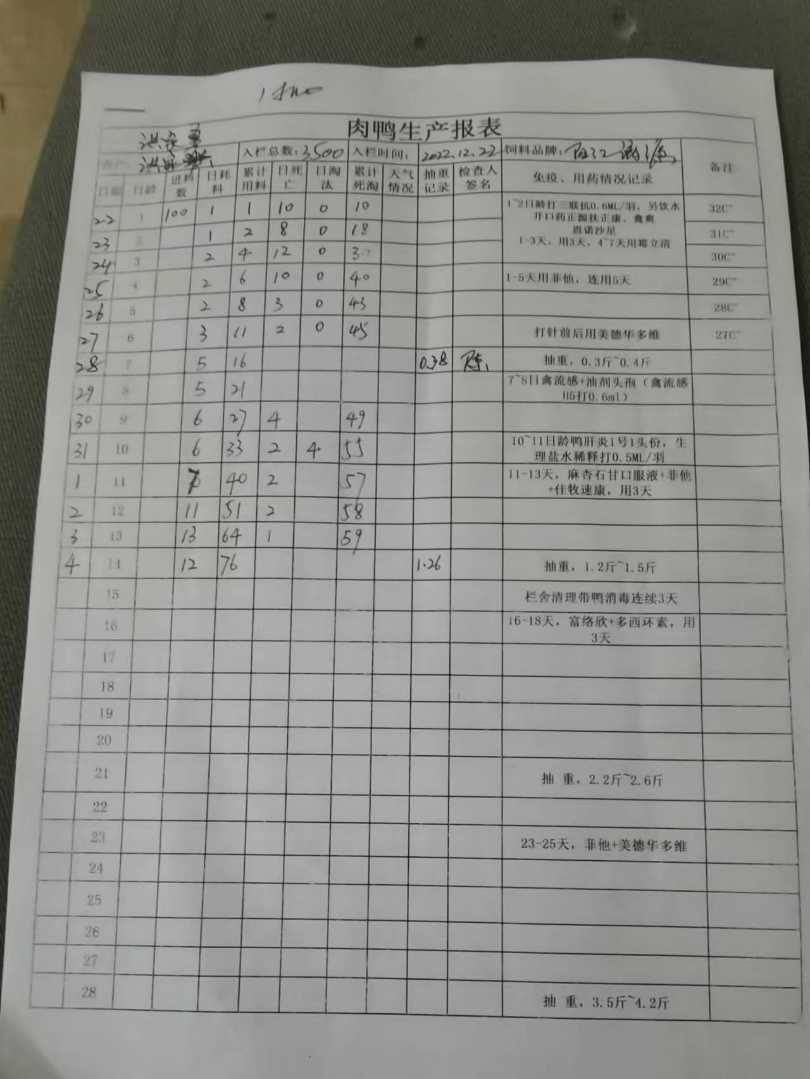 肉鸭生产报表
入栏总数：3500 入栏时间：2022.12.22 饲料品牌： 备注
日期 日龄 进料数 日耗料 累计用料 日死亡 日淘汰 累计死淘 天气情况 抽重记录 检查人签名 免疫、用药情况记录
22 1 100 1 1 10 0 10 1~2日龄打三联抗0.6ML/羽，另饮水 32C°
开口药正源扶正康、禽爽
恩诺沙星
1-3天，用3天，4~7天用霉立清
23 2 1 2 8 0 18 31C°
24 3 2 4 12 0 30C°
25 4 2 6 10 0 40 1-5天用菲他，连用5天 29C°
26 5 2 8 3 0 43 28C°
27 6 3 11 2 0 45 打针前后用美德华多维 27C°
28 7 5 16 0.38 抽重，0.3斤~0.4斤
29 8 5 21 7~8日禽流感+油剂头孢（禽流感
H5打0.6ml）
30 9 6 27 4 49
31 10 6 33 2 4 55 10~11日龄鸭肝炎1号1头份，生
理盐水稀释打0.5ML/羽
1 11 7 40 2 57 11-13天，麻杏石甘口服液+菲他
+佳牧速康，用3天
2 12 11 51 2 58
3 13 13 64 1 59
4 14 12 76 1.26 抽重，1.2斤~1.5斤
15 栏舍清理带鸭消毒连续3天
16 16-18天，富络欣+多西环素，用
3天
17
18
19
20
21 抽 重，2.2斤~2.6斤
22
23 23-25天，菲他+美德华多维
24
25
26
27
28 抽 重，3.5斤~4.2斤